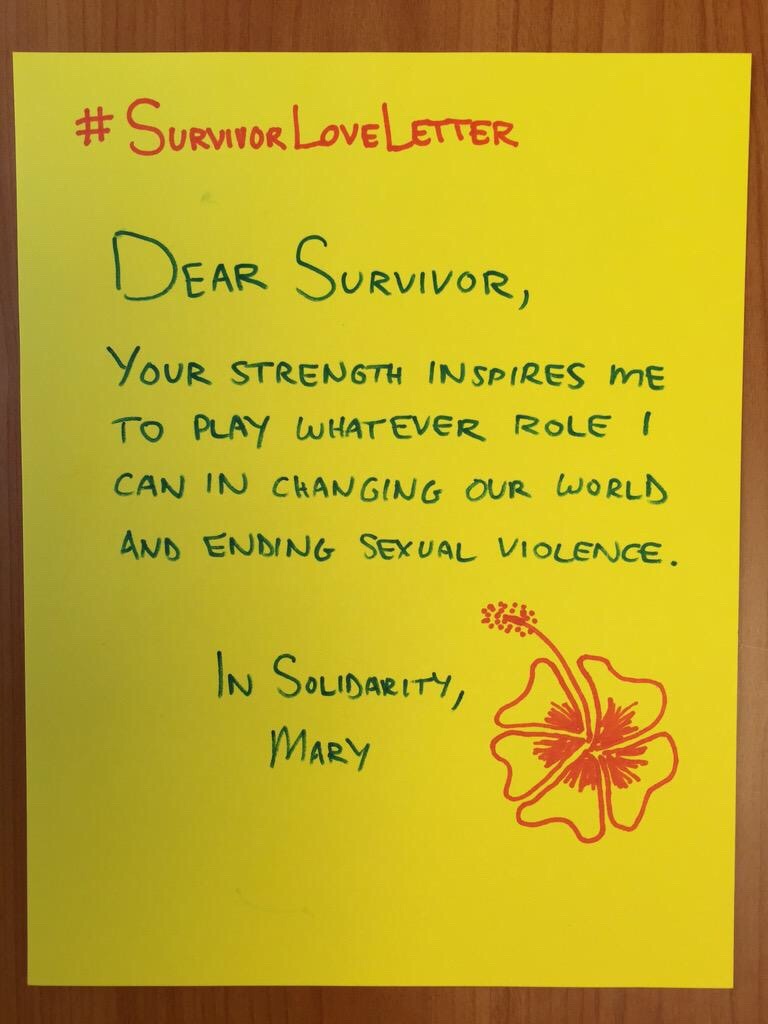 #SURVIVORLOVELETTER
DEAR SURVIVOR,
YOUR STRENGTH INSPIRES ME
TO PLAY WHATEVER ROLE I
CAN IN CHANGING OUR WORLD
AND ENDING SEXUAL VIOLENCE.
IN SOLIDARITY,
MARY